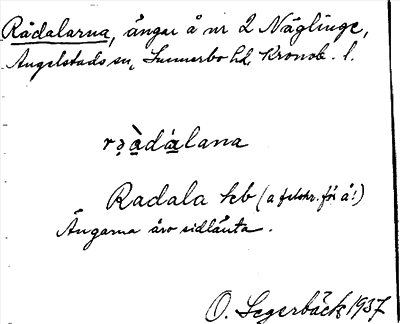 Rådalarna, ängar å nr 2 Näglinge,
Angelstads sn, Sunnerbo hd. Kronob. l.
rə̣à̱dá̱lana
Radala kb (a felskr. för å!)
Ängarna äro sidlänta.
O. Segerbäck 1937